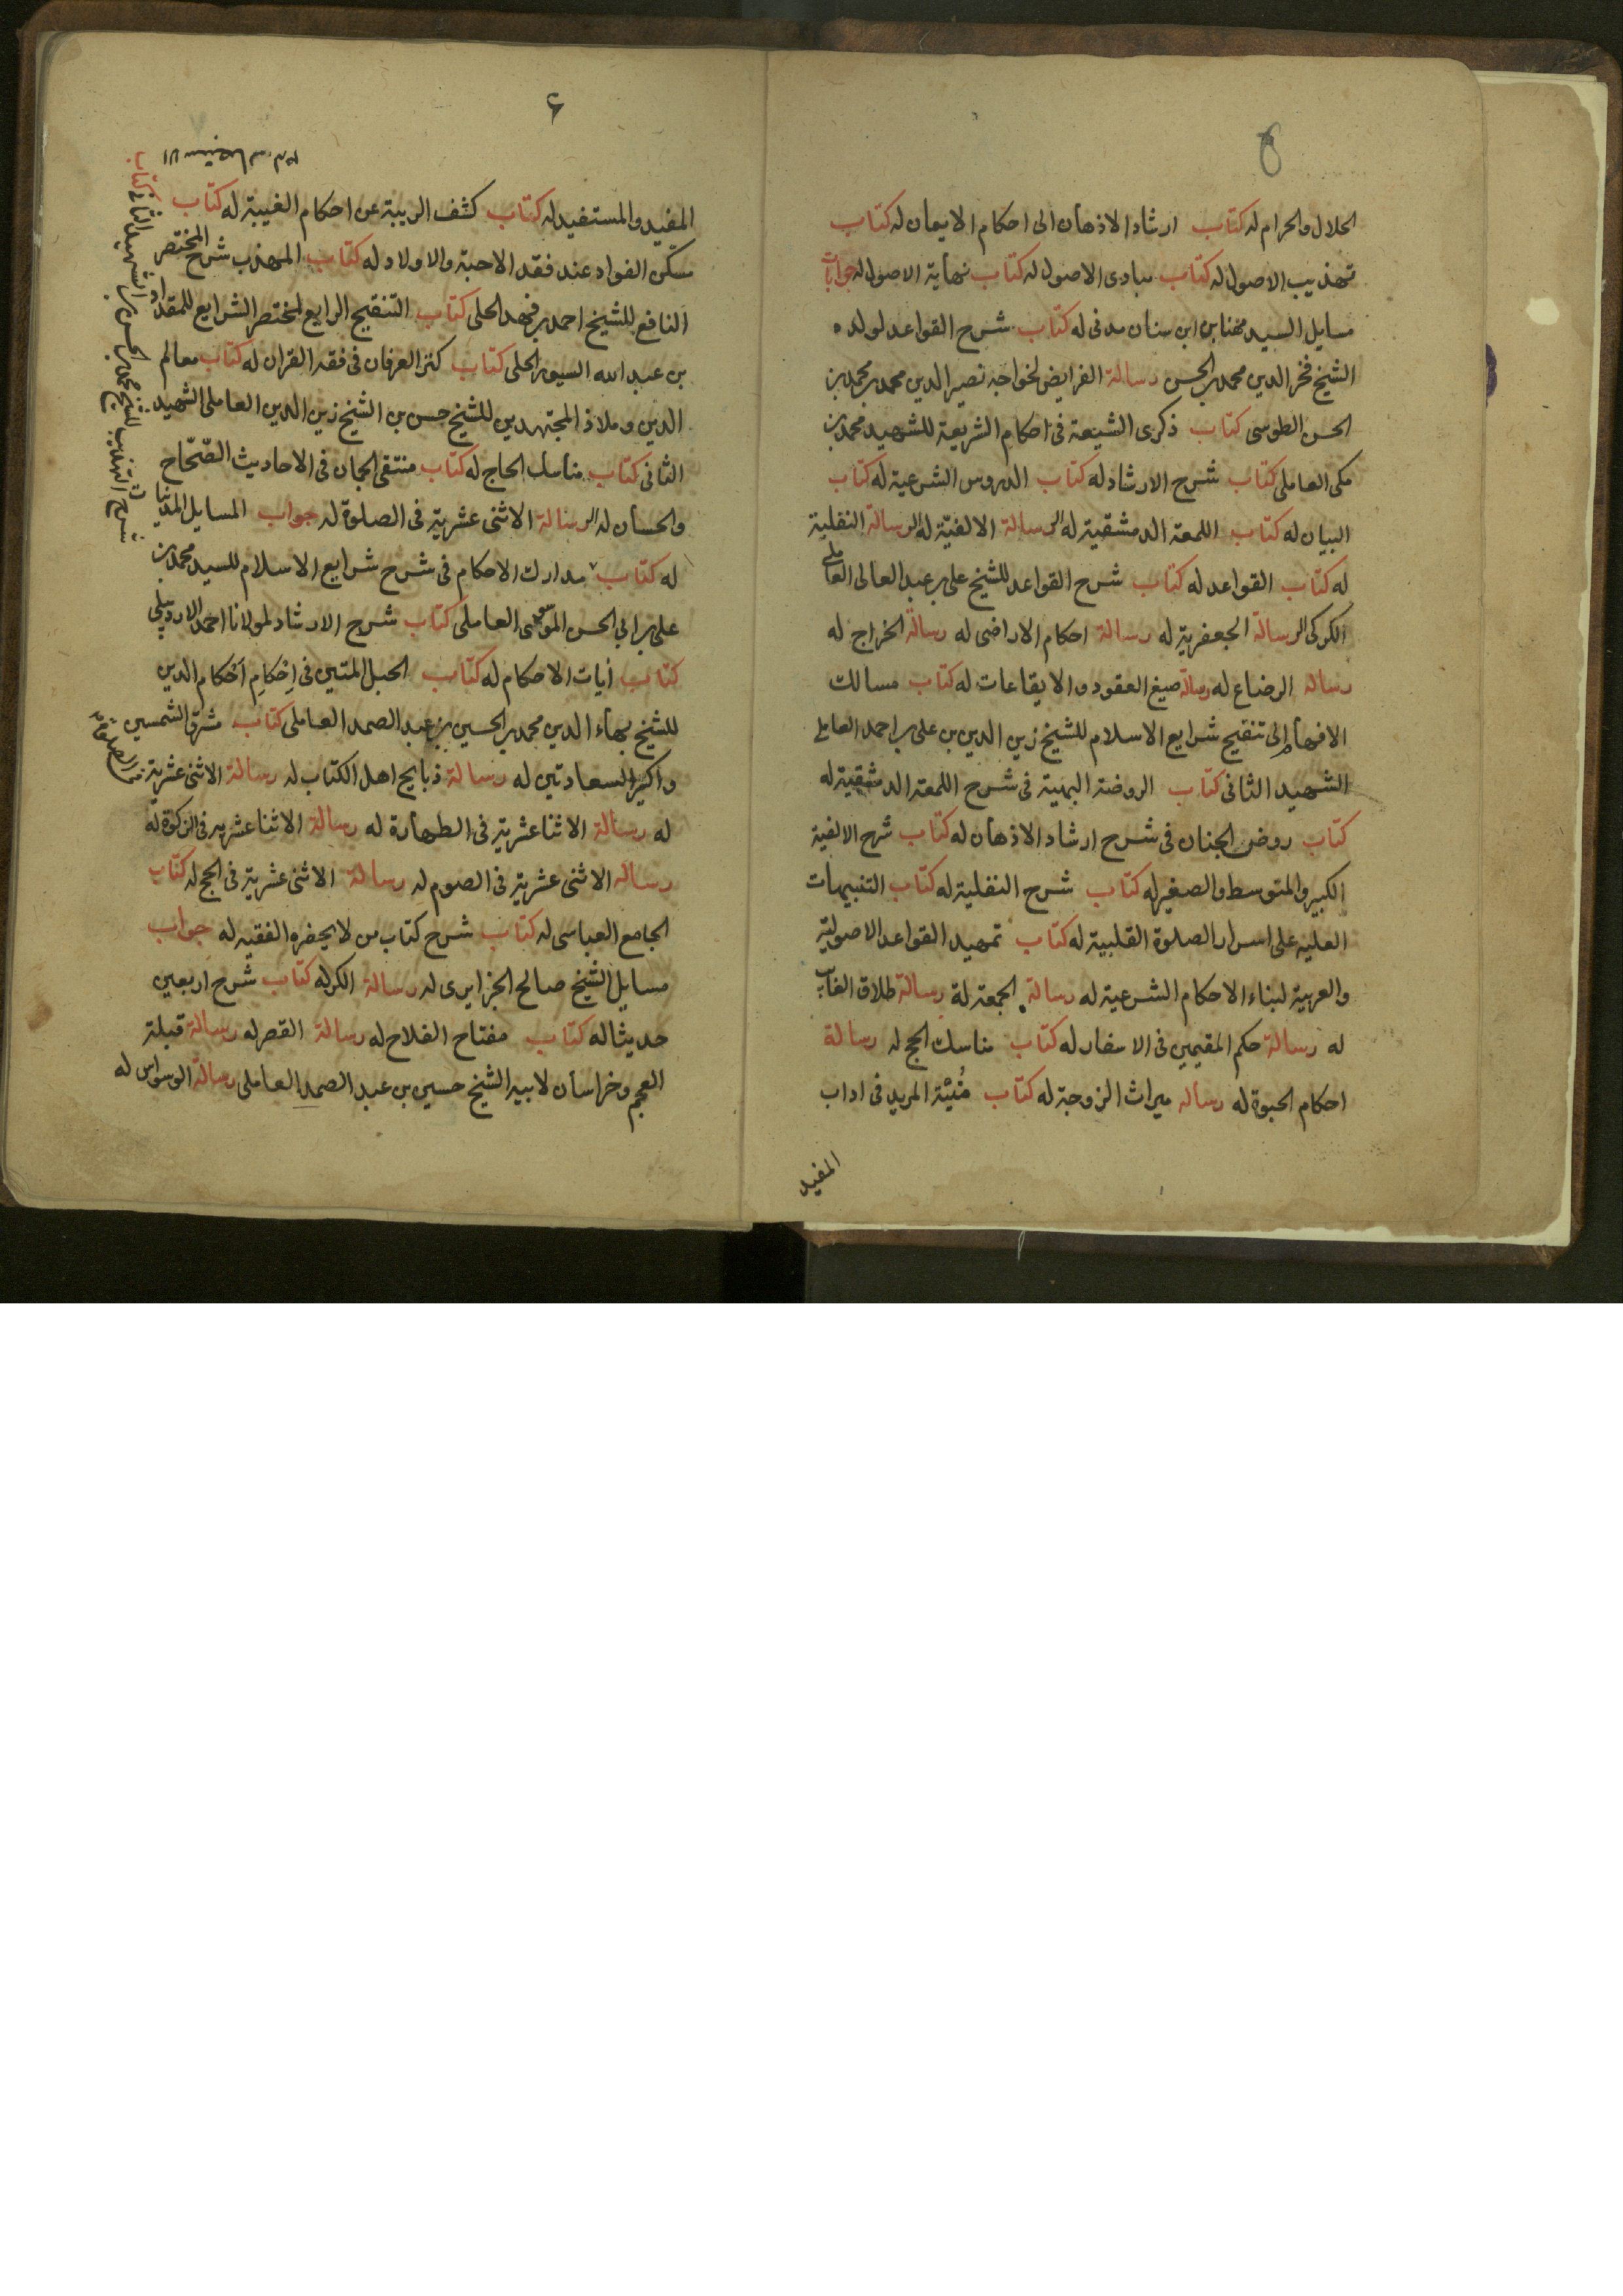 الحلال والحرام له كتاب ارشاد الاذهان الى احكام الايمان له كتاب
تهذيب الاصول له كتاب مبادى الاصول له كتاب نهاية الاصول له جوابات
مسايل السيد مهنا بن ابن سنان مدنى له كتاب شرح القواعد لولده
الشيخ فخر الدين محمد بن الحسن رسالة الفرايض لخواجه نصير الدين محمد بن محمد بن
الحسن الطوسى كتاب ذكرى الشيعة فى احكام الشريعة للشهيد محمد بن
مكى العاملى كتاب شرح الارشاد له كتاب الدروس الشرعية له كتاب
البيان له كتاب اللمعة الدمشقية له الرسالة الالفيّة له الرسالة النفلية
له كتاب القواعد له كتاب شرح القواعد للشيخ على بن عبد العالى العاملى
الكركى الرسالة الجعفرية له رسالة احكام الاراضى له رسالة الخراج له
رسالة الرضاع له رسالة صيغ العقود والايقاعات له كتاب مسالك
الافهام الى تنقيح شرايع الاسلام للشيخ زين الدين بن على بن احمد العاملى
الشهيد الثانى كتاب الروضة البهية فى شرح اللمعة الدمشقية له
كتاب روض الجنان فى شرح ارشاد الاذهان له كتاب شرح الالفية
الكبير والمتوسط والصغير له كتاب شرح النفلية له كتاب التنبيهات
العليه على اسرار الصلوة القلبية له كتاب تمهيد القواعد الاصولية
والعربية لبناء الاحكام الشرعية له رسالة الجمعة له رسالة طلاق الغايب
له رسالة حكم المقيمين فى الاسفار له كتاب مناسك الحج له رسالة
احكام الحبوة له رسالة ميراث الزوجة له كتاب مُنيَّة المريد فى اداب
المفيد
۶
المفيد والمستفيد له كتاب كشف الريبة عن احكام الغيبة له كتاب
مسكن الفواد عند فقد الاحبة والاولاد له كتاب المهذب شرح المختصر
النافع للشيخ احمد بن فهد الحلى كتاب التنقيح الرايع لمختصر الشرايع للمقداد
بن عبد الله السيورى الحلى كتاب كنز العرفان فى فقه القران له كتاب معالم
الدين وملاذ المجتهدين للشيخ حسن بن الشيخ زين الدين العاملى الشهيد
الثانى كتاب مناسك الحاج له كتاب منتقى الجمان فى الاحاديث الصّحّاح
والحسان له الرسالة الاثنى عشرية فى الصلوة له جواب المسايل المدنيات
له كتاب مدارك الاحكام فى شرح شرايع الاسلام للسيد محمد بن
على بن ابي الحسن الموسى العاملى كتاب شرح الارشاد لمولانا احمد الاردبيلى
كتاب ايات الاحكام له كتاب الحبل المتين فى اِحْكامِ اَحْكام الدين
للشيخ بهاء الدين محمد بن الحسين بن عبد الصمد العاملى كتاب مشرق الشمسين
واكسير السعادتين له رسالة ذبايح اهل الكتاب له رسالة الاثنى عشرية فى الصلوة
له رسالة الاثنا عشرية فى الطهارة له رسالة الاثنا عشرية فى الزكوة له
رسالة الاثنى عشرية فى الصوم له رسالة الاثنى عشرية فى الحج له كتاب
الجامع العباسى له كتاب شرح كتاب من لا يحضره الفقيه له جواب
مسايل الشيخ صالح الجزايرى له رسالة الكر له كتاب شرح اربعين
حديثا له كتاب مفتاح الفلاح له رسالة القصر له رسالة قبلة
العجم وخراسان لابيه الشيخ حسين بن عبد الصمد العاملى رسالة الوسواس له
شرح التهذيب للشيخ محمد بن الحسن بن الشهيد الثانى كتاب